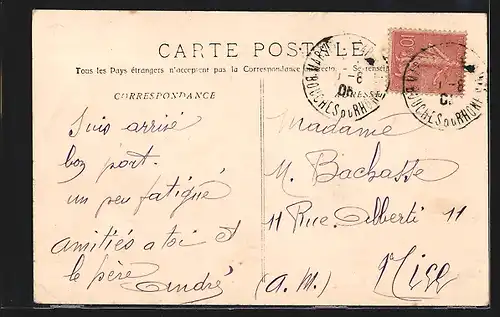 CARTE POSTALE
Tous les Pays étrangers n'acceptent pas la Correspondance au recto. Se renseigner
CORRESPONDANCE
ADRESSE
MARS
BOUCHES DU RHONE
BOUCHES DU RHONE
10
Suis arrivé
bon port.
un peu fatigué
amitiés a toi et
le père André
Madame
M. Bachasse
11 Rue Alberti 11
(A. M.) Nice